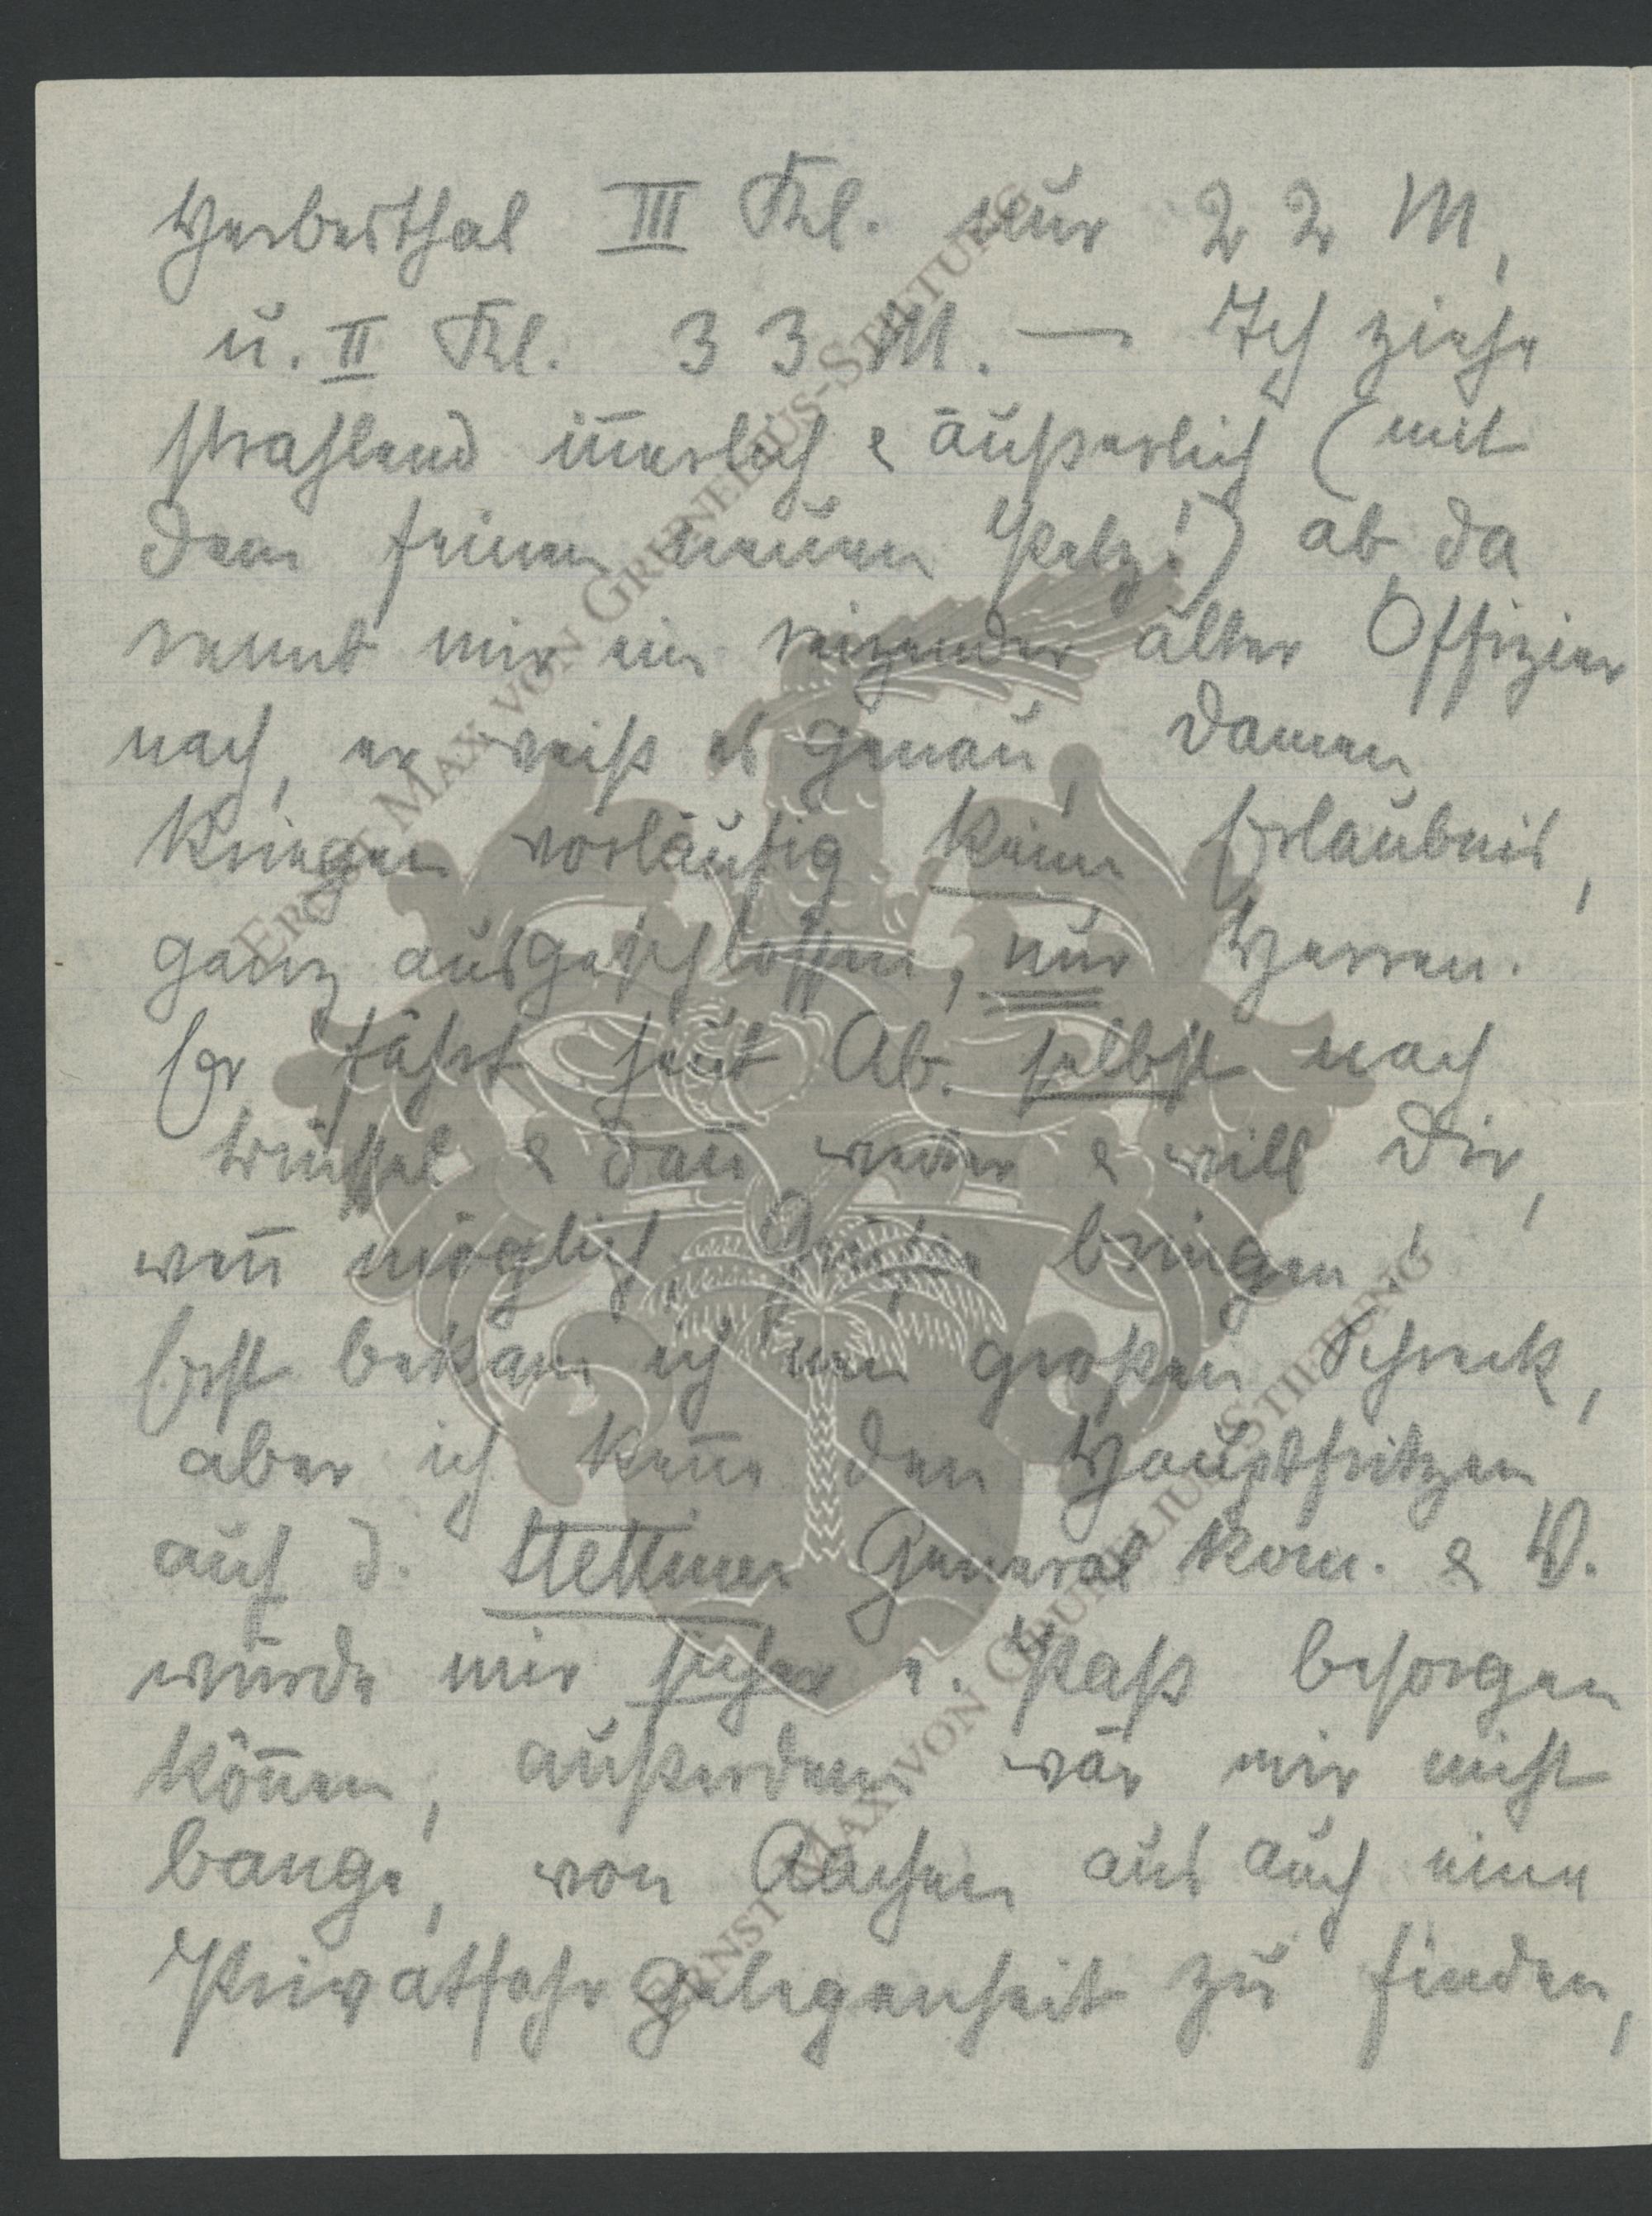 Herbesthal III Kl. nur 22 M,
u. II Kl. 33 M. — Ich ziehe
strahlend innerlich & äußerlich (mit
dem feinen neuen Pelz!) ab, da
rennt mir ein reizender alter Offizier
nach, er weiß es genau, Damen
kriegen vorläufig keine Erlaubnis,
ganz ausgeschlossen, nur Herren.
Er fährt heut Ab. selbst nach
Brüssel & dann weiter & will Dir,
wenn möglich, Grüße bringen.
Erst bekam ich nen großen Schreck,
aber ich kenne den Hauptfritzen
auf d. Stettiner General Kom. & W.
würde mir sicher e. Paß besorgen
können, außerdem wär mir nicht
bange, von Aachen aus auch eine
Privatfahrgelegenheit zu finden,
ERNST MAX VON GRUNELIUS-STIFTUNG
ERNST MAX VON GRUNELIUS-STIFTUNG